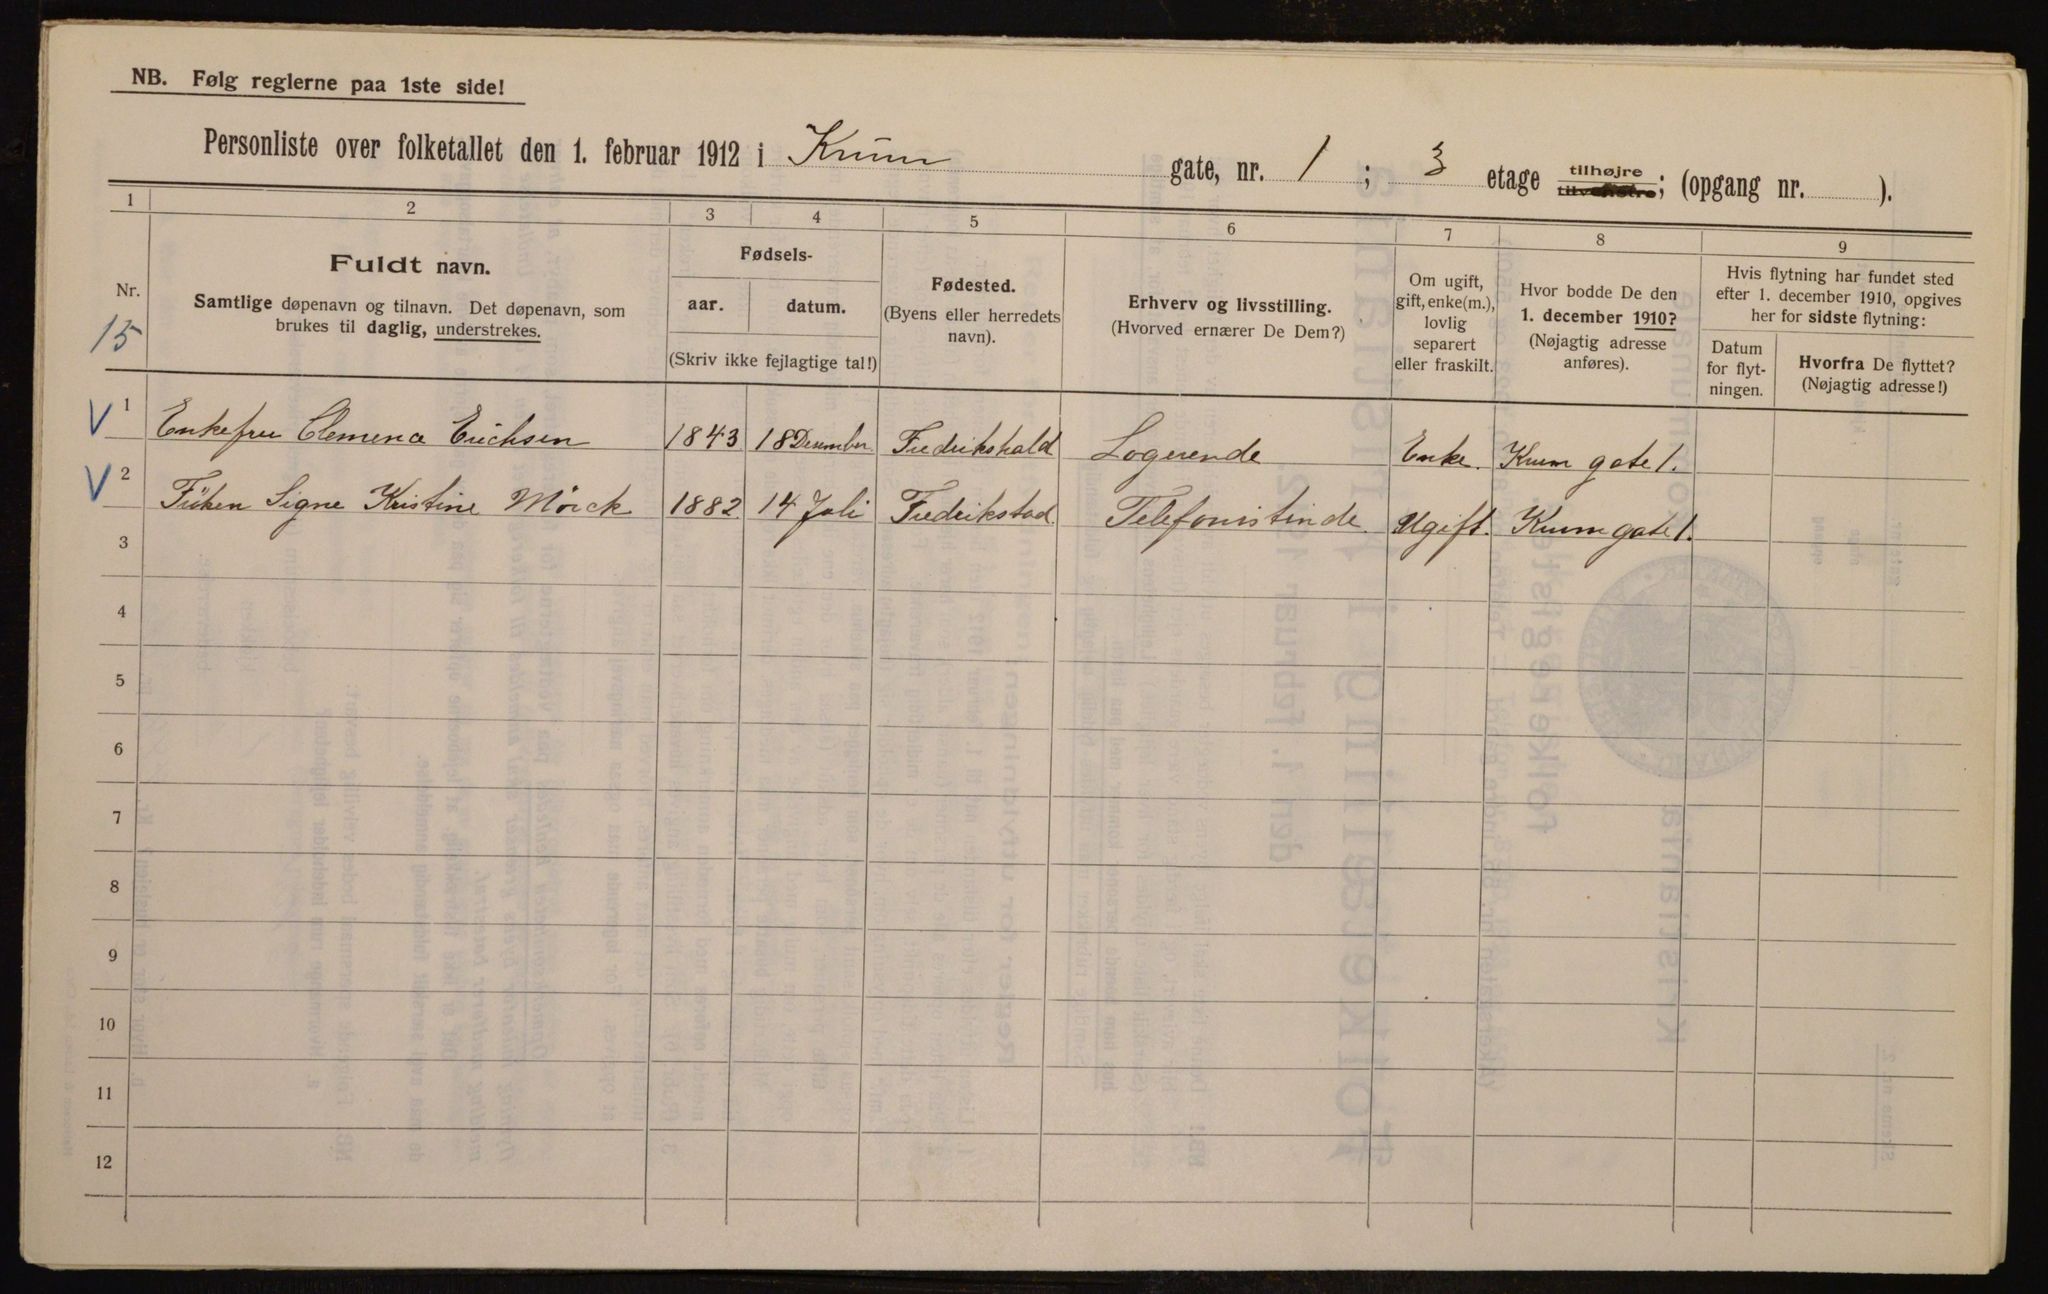 NB. Følg reglerne paa 1ste side!
Personliste over folketallet den 1. februar 1912 i Krum gate, nr. 1 ; 3 etage tilhøjre tilvenstre; (opgang nr. ).
1 2 3 4 5 6 7 8 9
Nr.
15
Fuldt navn.
Samtlige døpenavn og tilnavn. Det døpenavn, som
brukes til daglig, understrekes.
Fødsels-
aar. datum.
(Skriv ikke fejlagtige tal!)
Fødested.
(Byens eller herredets
navn).
Erhverv og livsstilling.
(Hvorved ernærer De Dem?)
Om ugift,
gift, enke(m.),
lovlig
separert
eller fraskilt.
Hvor bodde De den
1. december 1910?
(Nøjagtig adresse
anføres).
Hvis flytning har fundet sted
efter 1. december 1910, opgives
her for sidste flytning:
Datum
for flyt-
ningen.
Hvorfra De flyttet?
(Nøjagtig adresse!)
V 1 Enkefru Clemena Erichsen 1843 18 Desember Fredrikshald Logerende Enke. Krum gate 1.
V 2 Frøken Signe Kristine Mörck 1882 14 Juli Fredrikstad. Telefonistinde Ugift. Krum gate 1.
3
4
5
6
7
8
9
10
11
12